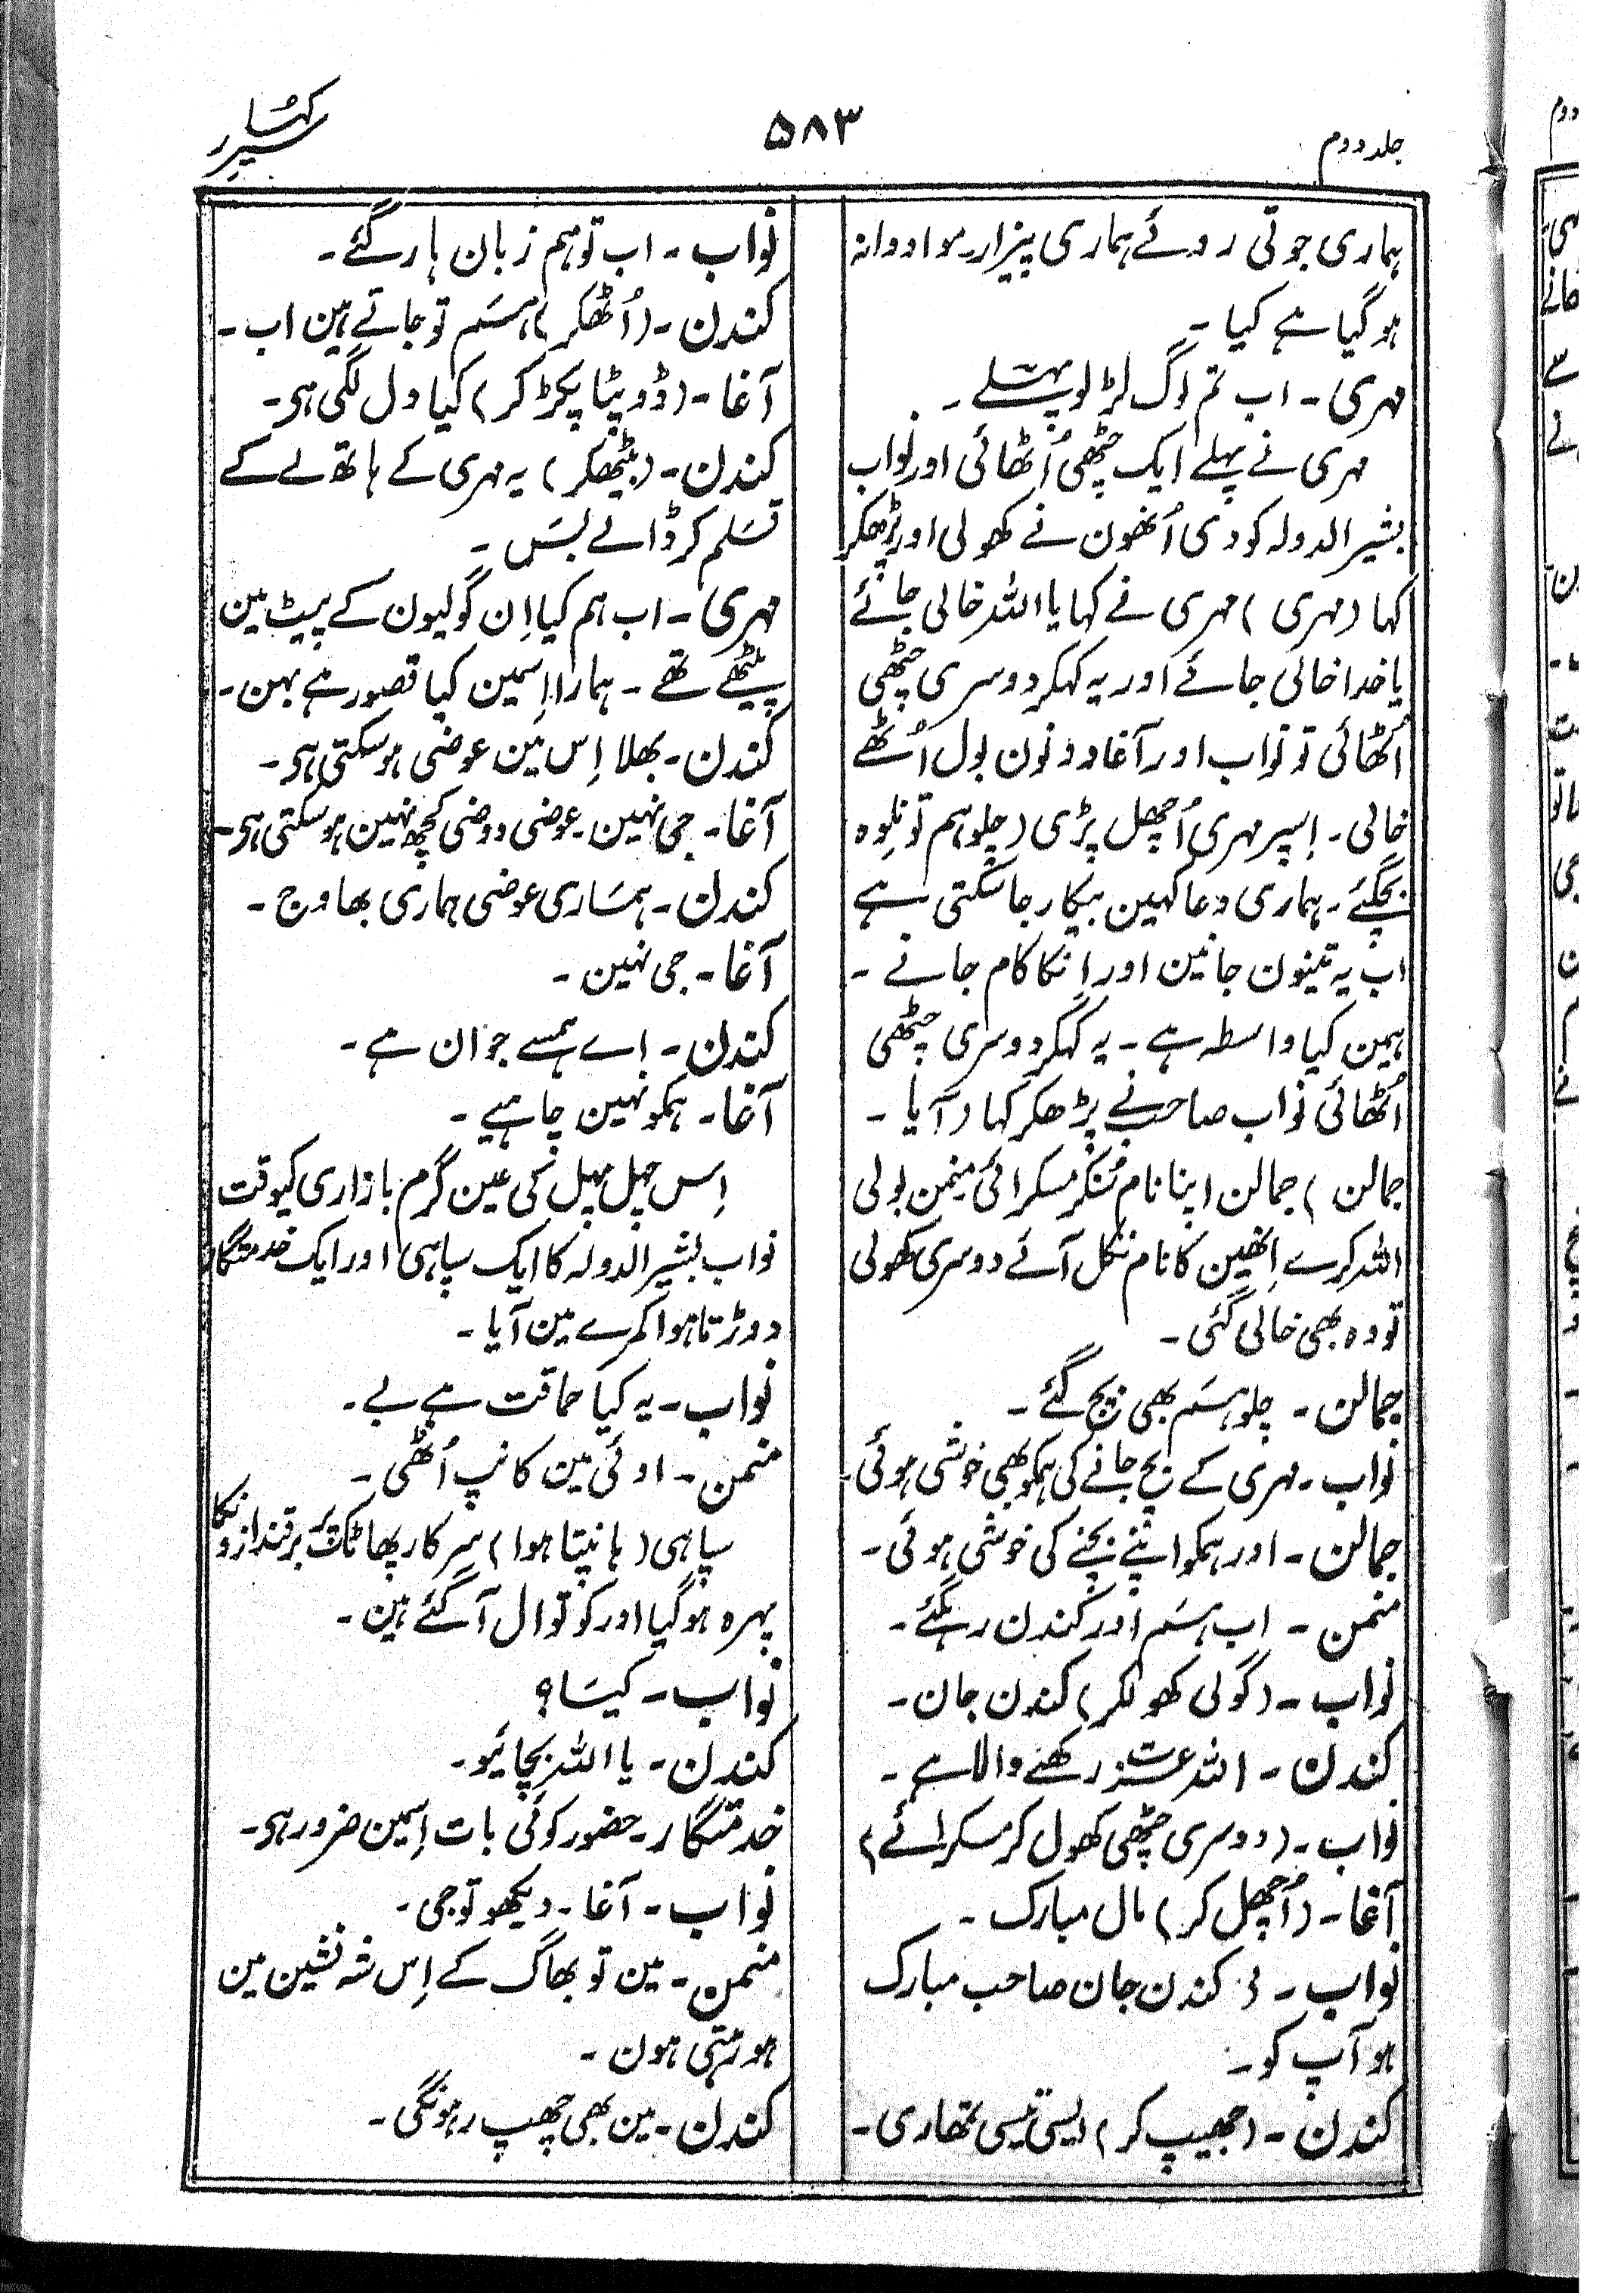 جلد دوم
۵۸۳
سیر کہسار
ہماری جوتی روئے ہماری پیزار۔ موا دوانہ
ہو گیا ہے کیا ۔
مہری ۔ اب تم لوگ لڑ لو پہلے ۔
مہری نے پہلے ایک چٹھی اُٹھائی اور نواب
بشیر الدولہ کو دی اُنھون نے کھولی اور پڑھکر
کہا (مہری) مہری نے کہا یا اللہ خالی جائے
یا خدا خالی جائے اور یہ کہکر دوسری چٹھی
اُٹھائی تو نواب اور آغا دونون بول اُٹھے
خالی ۔ اِسپر مہری اُچھل پڑی (چلو ہم تو نِلوہ
بچگئے ۔ ہماری دعا کہین بیکار جا سکتی ہے
اب یہ تینون جانین اور اِنکا کام جانے ۔
ہمین کیا واسطہ ہے ۔ یہ کہکر دوسری چٹھی
اُٹھائی نواب صاحب نے پڑھکر کہا (آہا ۔
جمالن) جمالن اپنا نام سُنکر مسکرائی منمن بولی
اللہ کرے اِنھین کا نام نکل آئے دوسری کھولی
تو وہ بھی خالی گئی ۔
جمالن ۔ چلو ہم بھی بچ گئے ۔
نواب ۔ مہری کے بچ جانے کی ہمکو بھی خوشی ہوئی ۔
جمالن ۔ اور ہمکو اپنے بچنے کی خوشی ہوئی ۔
منمن ۔ اب ہم اور کندن رہگئے ۔
نواب ۔ (گولی کھولکر) کندن جان ۔
کندن ۔ اللہ عزت رکھنے والا ہے ۔
نواب ۔ (دوسری چٹھی کھول کر مسکرائے)
آغا ۔ (اُچھل کر) مال مبارک ۔
نواب ۔ لو کندن جان صاحب مبارک
ہو آپ کو ۔
کندن ۔ (جھیپ کر) ایسی تیسی تمھاری ۔
نواب ۔ اب تو ہم زبان ہار گئے ۔
کندن ۔ (اُٹھکر) ہم تو جاتے ہین اب ۔
آغا ۔ (ڈوپٹا پکڑ کر) کیا دل لگی ہی ۔
کندن ۔ (بیٹھکر) یہ مہری کے ہاتھ لے کے
قلم کر ڈالے بس ۔
مہری ۔ اب ہم کیا اِن گولیون کے پیٹ مین
بیٹھے تھے ۔ ہمارا اِسمین کیا قصور ہے بہن ۔
کندن ۔ بھلا اِس مین عوضی ہو سکتی ہی ۔
آغا ۔ جی نہین ۔ عوضی ووضی کچھ نہین ہو سکتی ہی ۔
کندن ۔ ہماری عوضی ہماری بھاوج ۔
آغا ۔ جی نہین ۔
کندن ۔ اے ہمسے جوان ہے ۔
آغا ۔ ہمکو نہین چاہیے ۔
اِس چہل پہل کی عین گرم بازاری کیوقت
نواب بشیر الدولہ کا ایک سپاہی اور ایک خدمتگار
دوڑتا ہوا کمرے مین آیا ۔
نواب ۔ یہ کیا حماقت ہے بے ۔
منمن ۔ اوئی مین کانپ اُٹھی ۔
سپاہی (ہانپتا ہوا) سرکار پھاٹک پر برقندازونکا
پہرہ ہو گیا اور کوتوال آگئے ہین ۔
نواب ۔ کیسا؟
کندن ۔ یا اللہ بچائیو ۔
خدمتگار ۔ حضور کوئی بات اِسمین ضرور ہی ۔
نواب ۔ آغا ۔ دیکھو تو جی ۔
منمن ۔ مین تو بھاگ کے اِس شہ نشین مین
ہو رہتی ہون ۔
کندن ۔ مین بھی چھپ رہونگی ۔